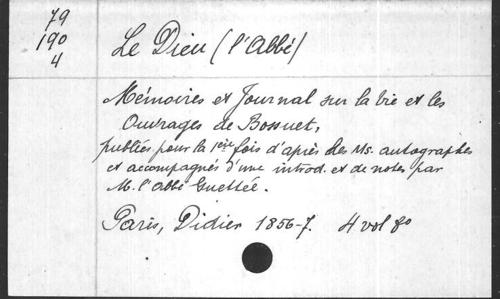 79
190
4
Le Dieu (l'Abbé)
Mémoires et Journal sur la vie et les
Ouvrages de Bossuet,
publiés pour la 1ère fois d'après les Ms. autographes
et accompagnés d'une introd. et de notes par
M. l'abbé Guettée.
Paris, Didier 1856-7. 4 vol 8o